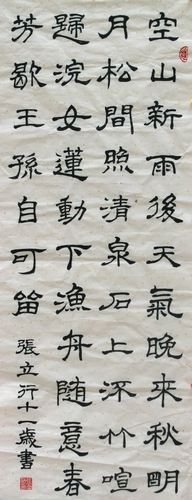 空山新雨後天氣晚來秋明
月松間照清泉石上流竹喧
歸浣女蓮動下漁舟隨意春
芳歇王孫自可留
張立行十一歲書